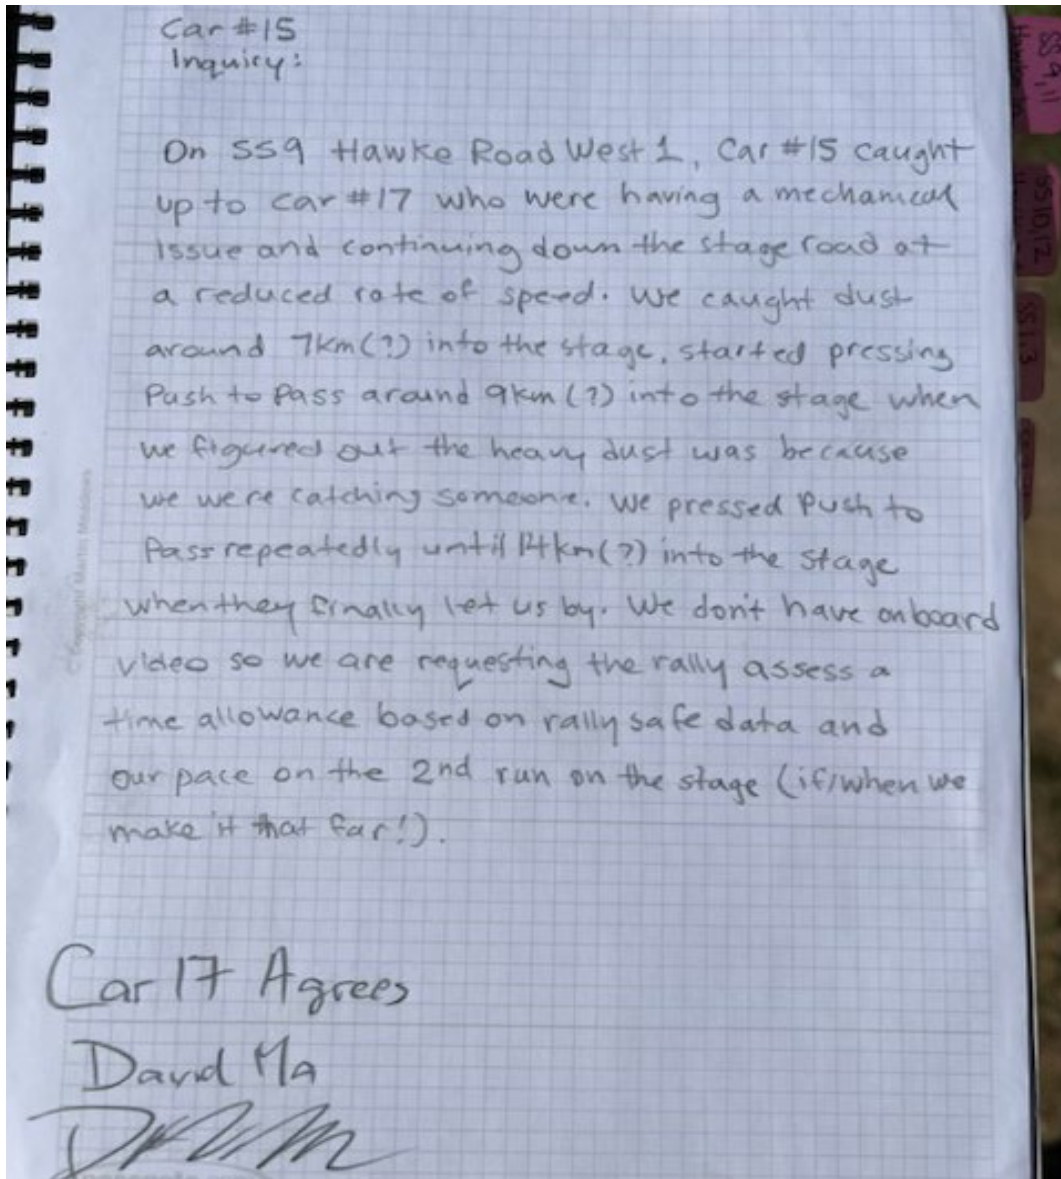 Car #15
Inquiry:
On SS9 Hawke Road West 1, Car #15 caught
up to car #17 who were having a mechanical
issue and continuing down the stage road at
a reduced rate of speed. We caught dust
around 7km(?) into the stage, started pressing
Push to Pass around 9km (?) into the stage when
we figured out the heavy dust was because
we were catching someone. We pressed Push to
Pass repeatedly until 14km(?) into the stage
when they finally let us by. We don't have onboard
video so we are requesting the rally assess a
time allowance based on rally safe data and
our pace on the 2nd run on the stage (if/when we
make it that far!).
Car 17 Agrees
David Ma
SS 9, 11
SS 10, 12
SS 1, 3